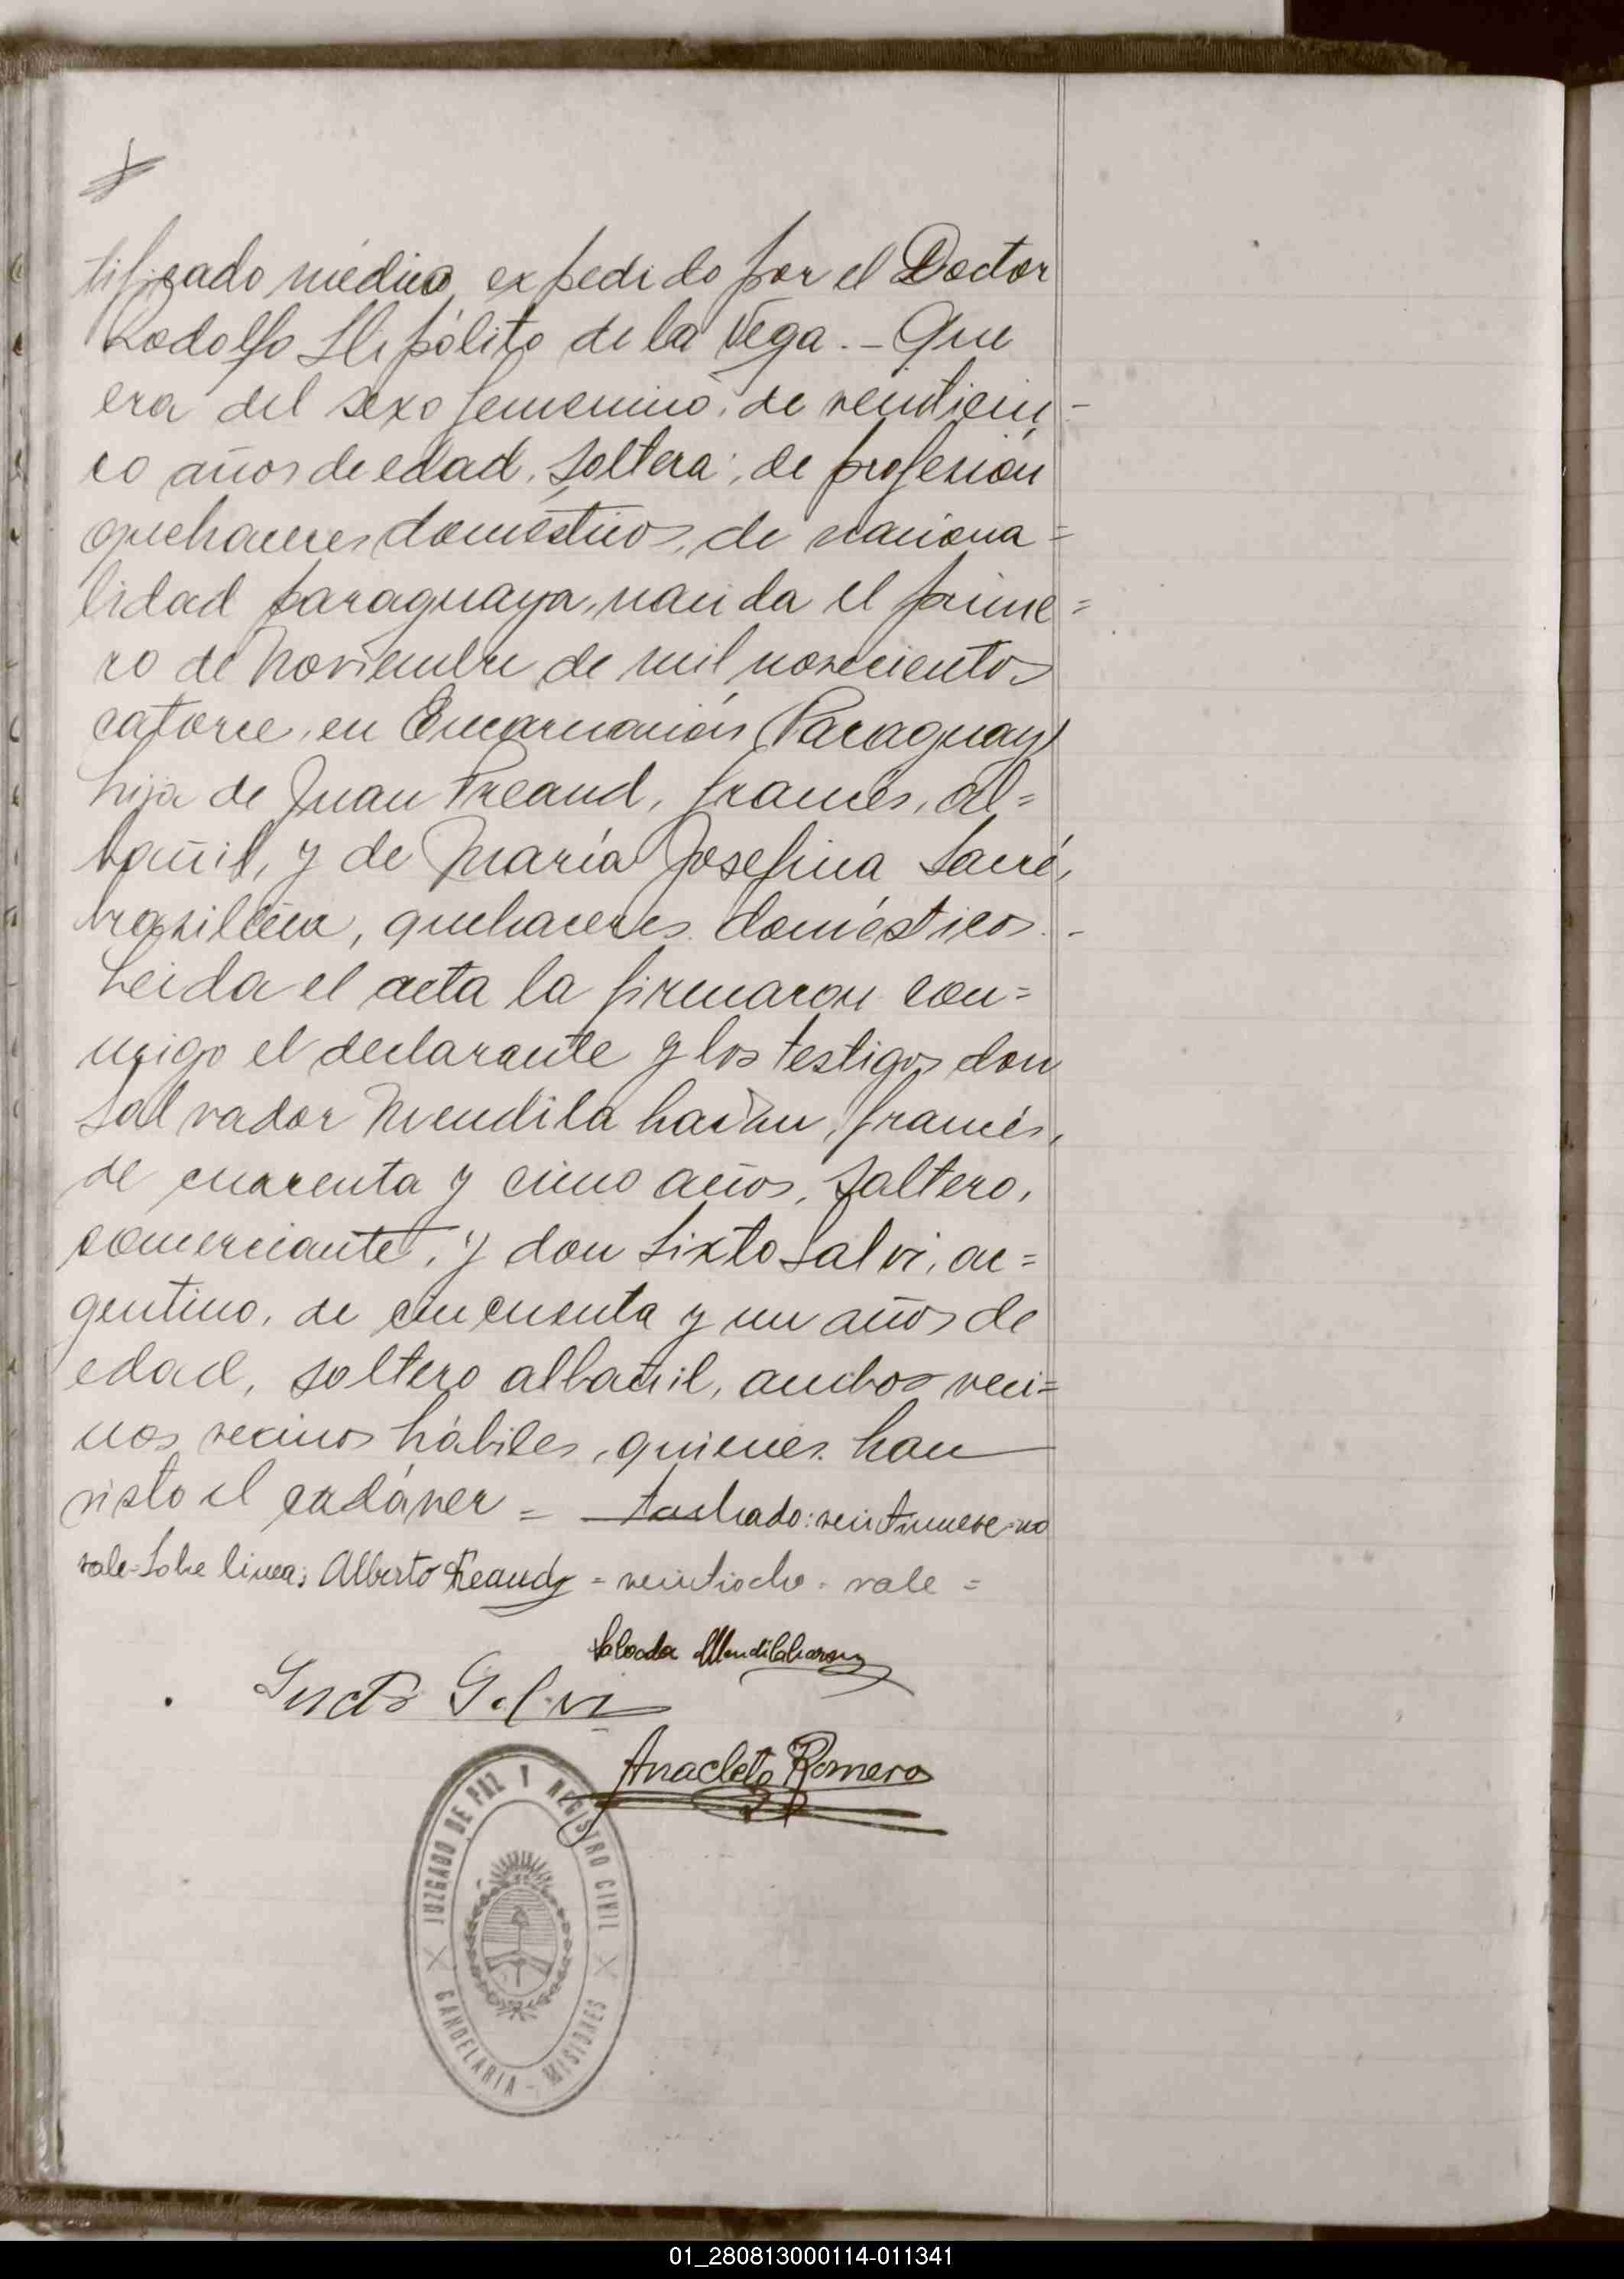 tificado médico expedido por el Doctor
Rodolfo Hipólito de la Vega.- Que
era del sexo femenino, de venticin-
co años de edad, soltera, de profesión
quehaceres domésticos, de naciona=
lidad paraguaya, nacida el prime=
ro de Noviembre de mil novecientos
catorce, en Encarnación (Paraguay)
hija de Juan Freaud, francés, al=
bañil, y de María Josefina Sacré,
brasilera, quehaceres domésticos.-
Leida el acta la firmaron con=
migo el declarante y los testigos don
Salvador Mendilaharzu, francés,
de cuarenta y cinco años, soltero,
comerciante, y don Sixto Salvi, ar=
gentino, de cincuenta y un años de
edad, soltero albañil, ambos veci=
nos vecinos hábiles, quienes han
visto el cadáver = Tachado: veintinueve-no
vale-Sobre linea: Alberto Freaud = veintiocho - vale =
Salvador Mendilaharzu
Sixto Salvi
Anacleto Romero
JUZGADO DE PAZ Y REGISTRO CIVIL
CANDELARIA - MISIONES
01_280813000114-011341